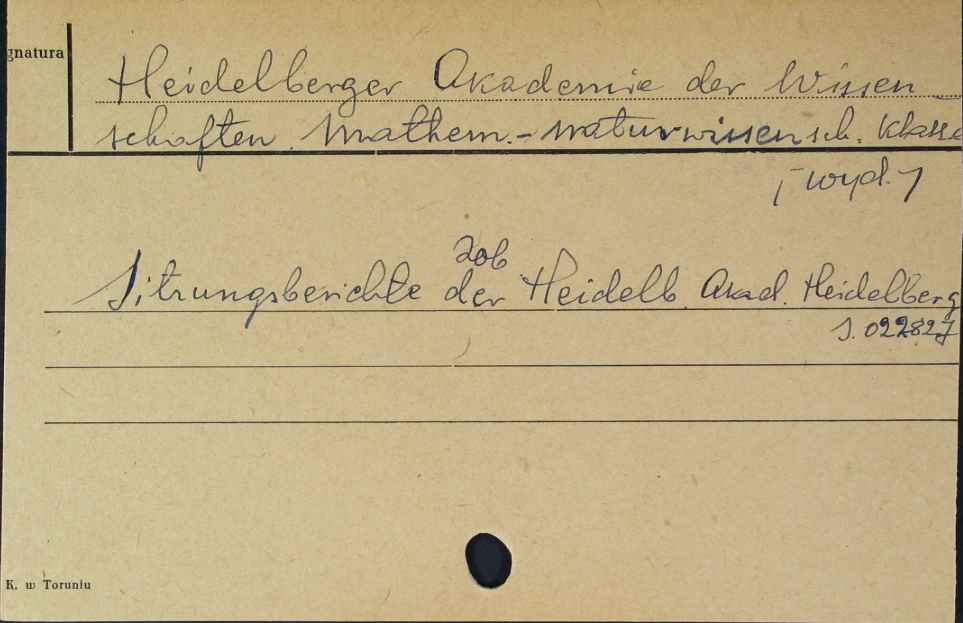 gnatura
Heidelberger Akademie der Wissen
schaften. Mathem.-naturwissensch. Klasse
[wyd.]
zob.
Sitzungsberichte der Heidelb. Akad. Heidelberg
S. 022827
K. w Toruniu